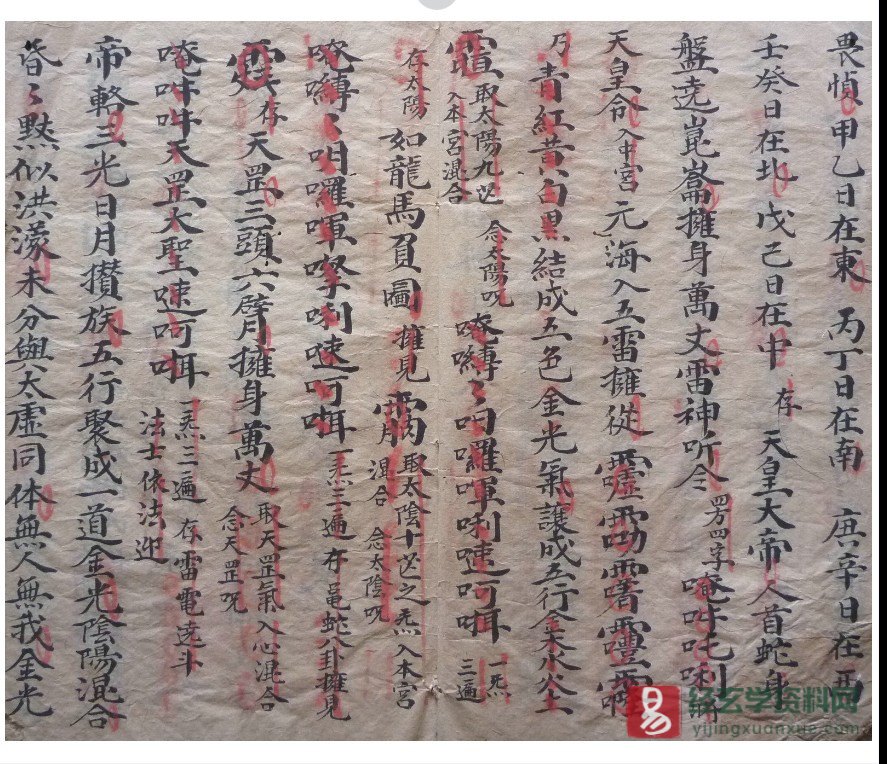 畏惧甲乙日在東 丙丁日在南 庚辛日在西
壬癸日在北 戊己日在中 存 天皇大帝人首蛇身
盤遶崑崙擁身萬丈雷神听令 四字 唵吽吒唎
天皇令入中宮 元海入五雷擁從
乃青紅黄白黑結成五色金光氣護成五行金木水火土
取太陽九炁 入本宮混合 念太陽呪 唵縛々呬囉㖇唎速呵㖇 一炁三遍
存太陽 如龍馬負圖 擁見 取太陰十炁之炁入本宮 混合 念太陰呪
唵縛々呬囉㖇唎速呵㖇 一炁三遍 存龜蛇八卦擁見
存 天罡三頭六臂擁身萬丈 取天罡氣入心混合 念天罡呪
唵吽吽天罡大聖速呵㖇 一炁三遍 存雷電遶斗 法士依法迎
帝輅三光日月攅族五行聚成一道金光陰陽混合
昏々黙似洪濛未分與太虚同体無人無我金光
易
经玄学资料网
yijingxuanxue.com